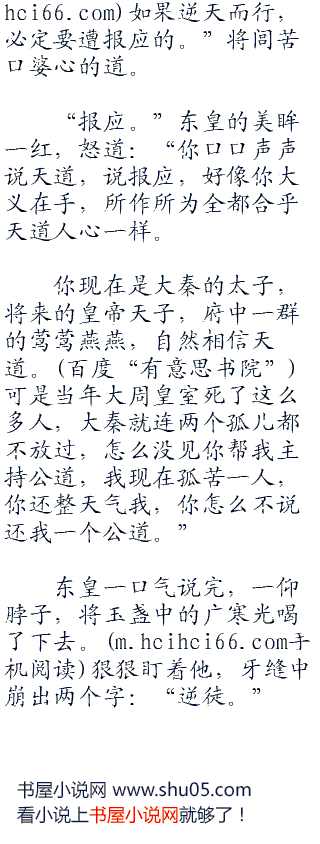 hci66.com)如果逆天而行，
必定要遭报应的。”将闾苦
口婆心的道。
“报应。”东皇的美眸
一红，怒道：“你口口声声
说天道，说报应，好像你大
义在手，所作所为全都合乎
天道人心一样。
你现在是大秦的太子，
将来的皇帝天子，府中一群
的莺莺燕燕，自然相信天
道。(百度“有意思书院”)
可是当年大周皇室死了这么
多人，大秦就连两个孤儿都
不放过，怎么没见你帮我主
持公道，我现在孤苦一人，
你还整天气我，你怎么不说
还我一个公道。”
东皇一口气说完，一仰
脖子，将玉盏中的广寒光喝
了下去。(m.hcihci66.com手
机阅读)狠狠盯着他，牙缝中
崩出两个字：“逆徒。”
书屋小说网 www.shu05.com
看小说上书屋小说网就够了！